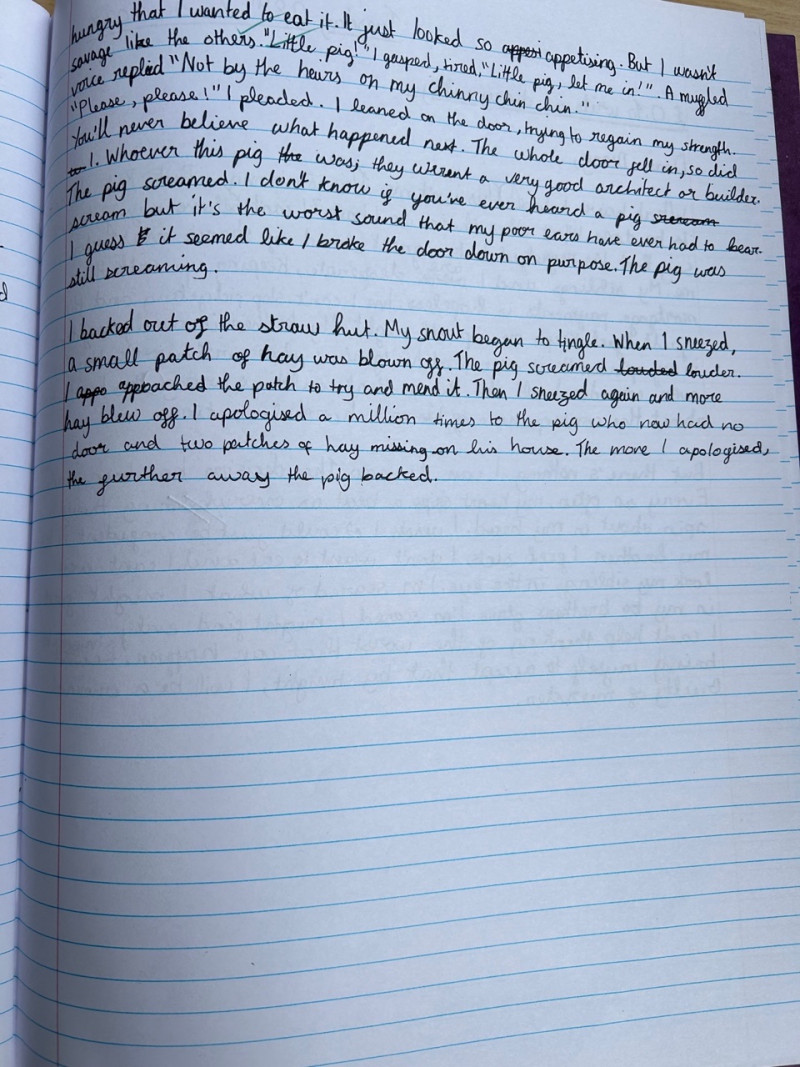 hungry that I wanted to eat it. It just looked so appesi appetising. But I wasn't
savage like the others. "Little pig!" I gasped, tired, "Little pig, let me in!". A muffled
voice replied "Not by the heirs on my chinny chin chin."
"Please, please!" I pleaded. I leaned on the door, trying to regain my strength.
You'll never believe what happened next. The whole door fell in, so did
to I. Whoever this pig the was, they werent a very good architect or builder.
The pig screamed. I don't know if you've ever heard a pig scream
scream but it's the worst sound that my poor ears have ever had to bear.
I guess it seemed like I broke the door down on purpose. The pig was
still screaming.
I backed out of the straw hut. My snout began to tingle. When I sneezed,
a small patch of hay was blown off. The pig screamed louded louder.
I appo appoached the patch to try and mend it. Then I sneezed again and more
hay blew off. I apologised a million times to the pig who now had no
door and two patches of hay missing on his house. The more I apologised,
the further away the pig backed.